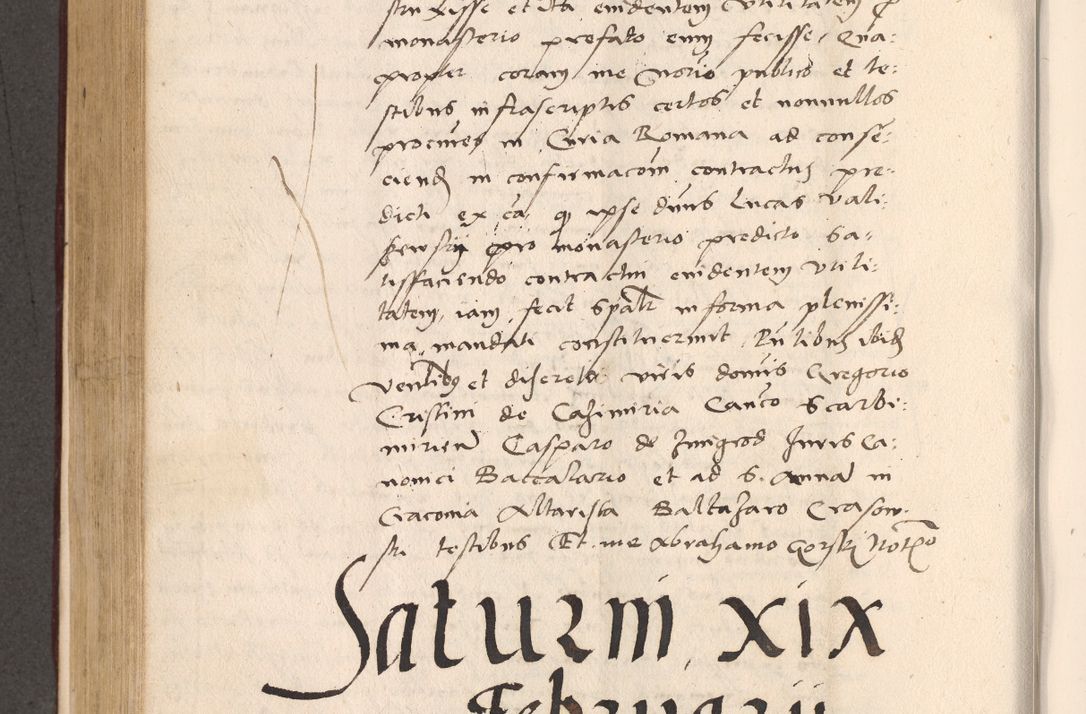 struxisse et ita euidentem vtilitatem p
monasterio prefato enim fecisse, Qua:
propter coram me Notrio publico et te:
stibus infrascriptis certos et nonnullos
procures in Curia Romana ad conse:
ciend in confirmacom contractus pre:
dicti ex ea qz ipse dnus Lucas Vali:
pro monasterio predicto sa:
tisfaciendo contractui euidentem vtili:
tatem, iam fecit spalr in forma plenissi:
ma mandati constituerunt, Pntibus ibid
Ventlibus et discretis viris domis Gregorio
Cristini de Casimiria Canco Scarbi:
mirien Casparo de Jmigrod Juris Ca:
nonici Baccalario et ad S. Annam in
Cracouia Altarista Baltazaro Crasow:
ski testibus Et me Abrahamo Gorski Notrio
Saturni xix
Februarii